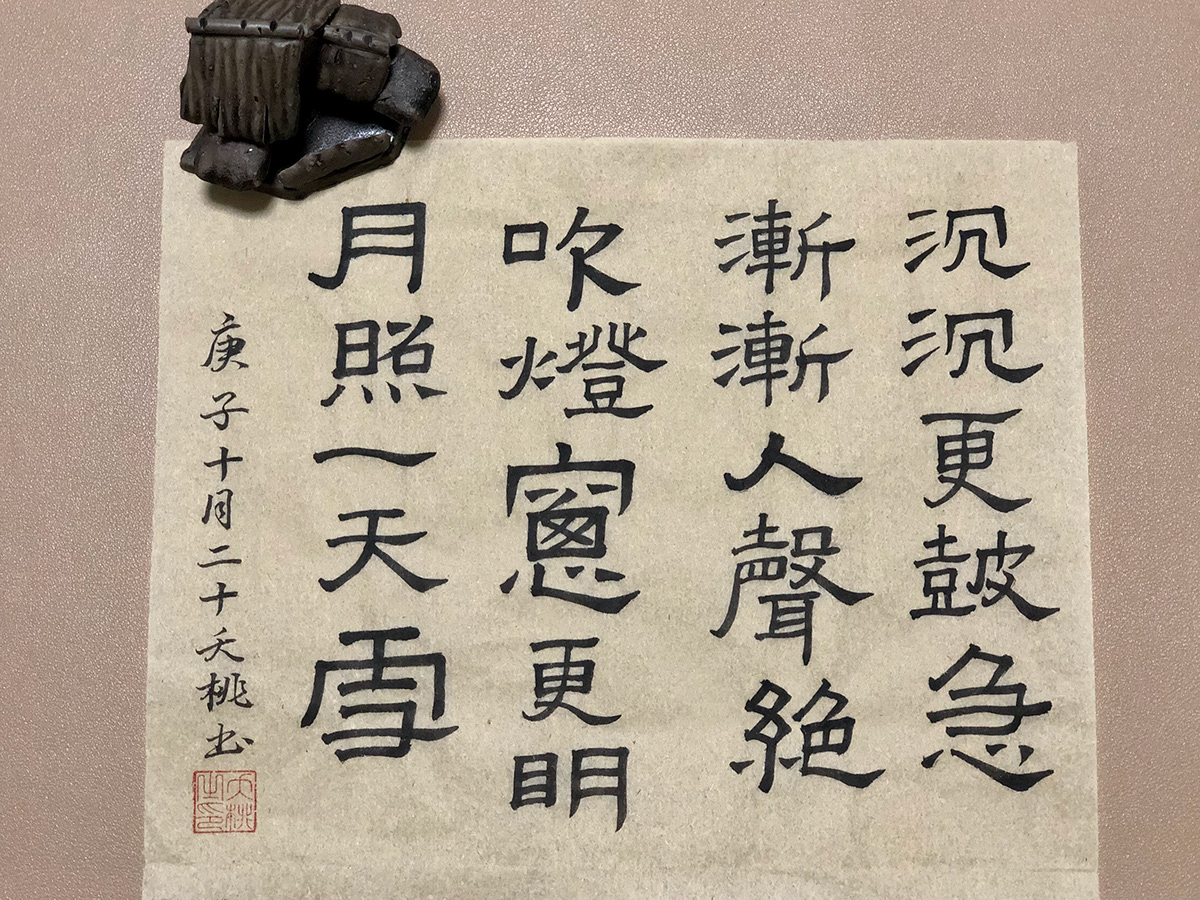 沉沉更鼓急
漸漸人聲絕
吹燈窻更明
月照一天雪
庚子十月二十夭桃书
夭桃之印